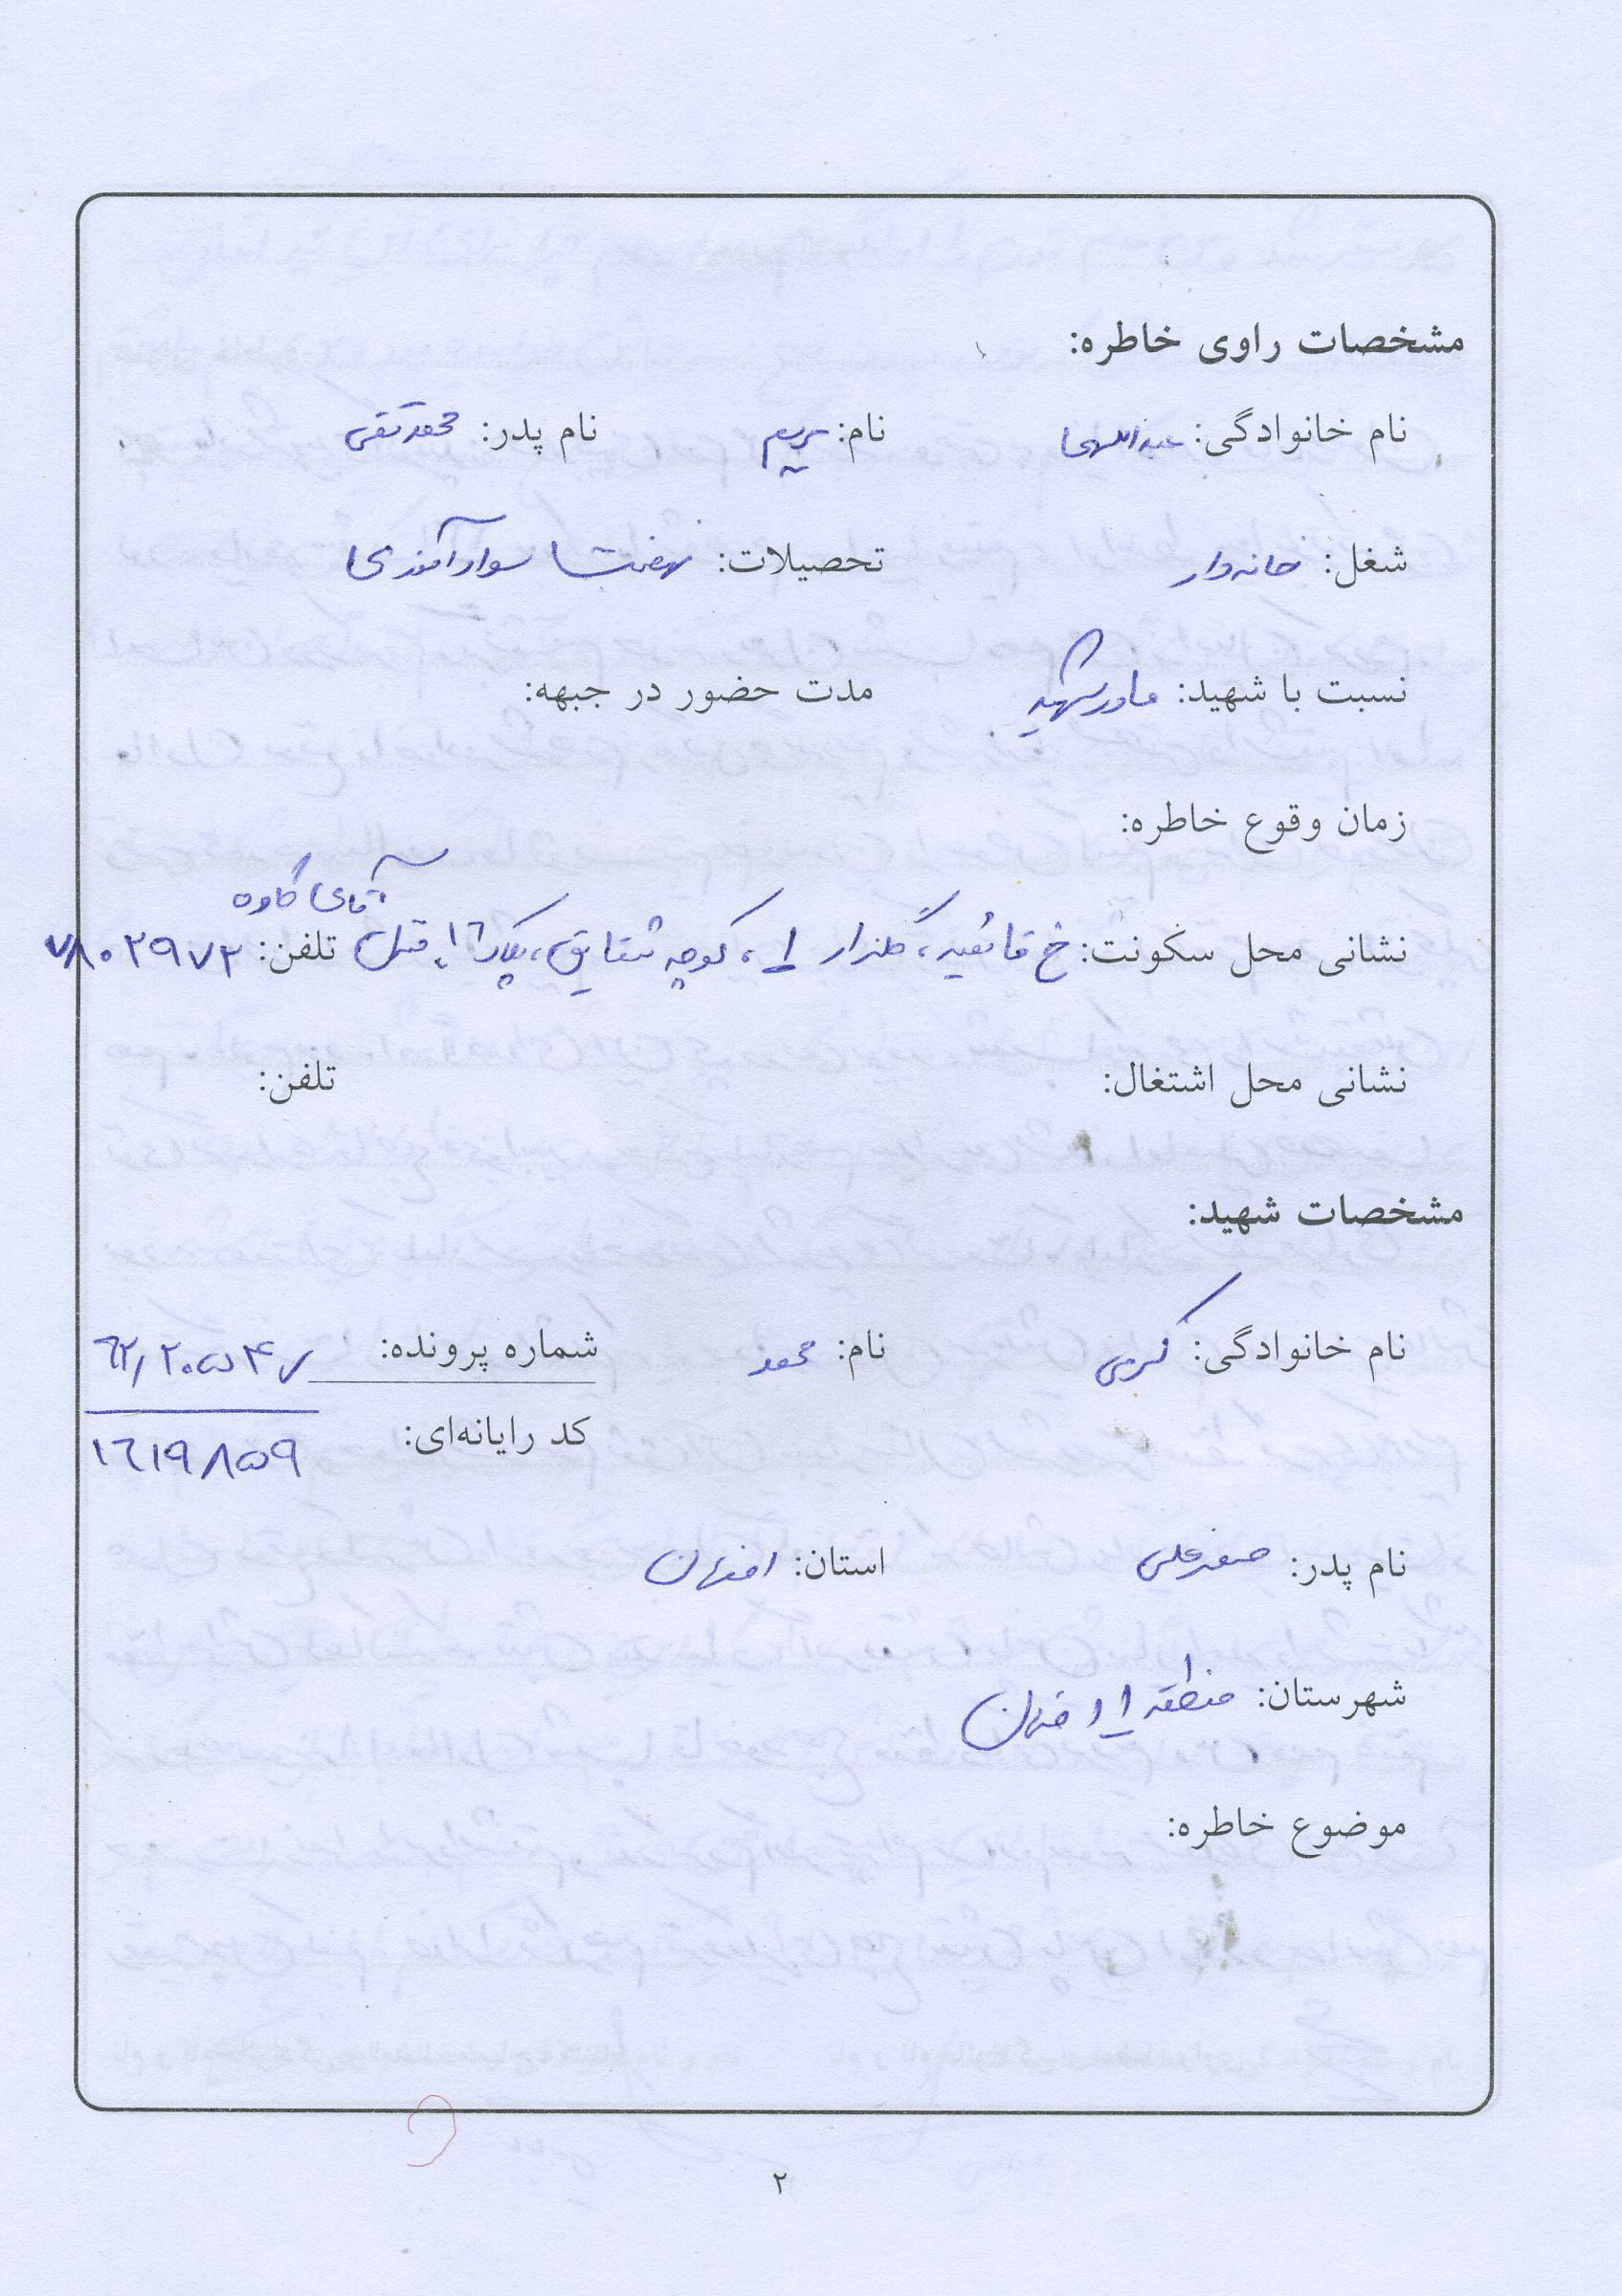 مشخصات راوی خاطره:
نام خانوادگی: عبداللهی نام: مریم نام پدر: محمدتقی
شغل: خانه‌دار تحصیلات: نهضت سوادآموزی
نسبت با شهید: مادر شهید مدت حضور در جبهه:
زمان وقوع خاطره:
آقای کاوه
نشانی محل سکونت: خ قائمیه، گلزار ۱، کوچه شقایق، پلاک ۱۶، تلفن: ۷۸۰۲۹۷۲
نشانی محل اشتغال: تلفن:
مشخصات شهید:
نام خانوادگی: کرمی نام: محمد شماره پرونده: ۶۲٫۲۰۵۴۷
کد رایانه‌ای: ۱۶۱۹۸۵۹
نام پدر: صفرعلی استان: اصفهان
شهرستان: منطقه ۱ اصفهان
موضوع خاطره:
۲